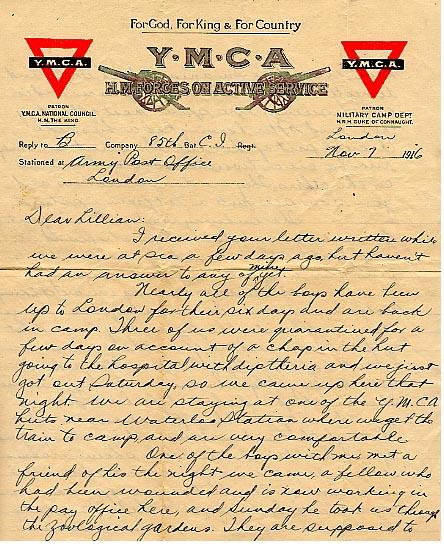 For God, For King & For Country
Y.M.C.A.
Y·M·C·A
Y.M.C.A.
H.M. FORCES ON ACTIVE SERVICE
PATRON
Y.M.C.A. NATIONAL COUNCIL.
H.M. THE KING.
PATRON
MILITARY CAMP DEPT
H.R.H. DUKE OF CONNAUGHT.
Reply to B Company 85th Bat C.I. Regt.
London
Nov 7 1916
Stationed at Army Post Office
London
Dear Lillian:
I received your letter written while
we were at sea a few days ago, but haven't
had an answer to any of mine yet.
Nearly all of the boys have been
up to London for their six days and are back
in camp. Three of us were quarantined for a
few days on account of a chap in the hut
going to the hospital with diptheria and we just
got out Saturday, so we came up here that
night. We are staying at one of the Y.M.C.A
huts near Waterloo Station where we get the
train to camp, and are very comfortable
One of the boys with me met a
friend of his the night we came, a fellow who
had been wounded and is now working in
the pay office here, and Sunday he took us through
the zoological gardens. They are supposed to